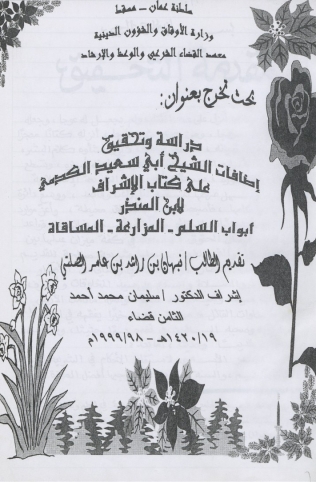 سلطنة عمان - مسقط
وزارة الأوقاف والشؤون الدينية
معهد القضاء الشرعي والوعظ والإرشاد
بحث تخرج بعنوان:
دراسة وتحقيق
إضافات الشيخ أبي سعيد الكدمي
على كتاب الإشراف
لابن المنذر
أبواب السلم - المزارعة - المساقاة
تقديم الطالب / نبهان بن راشد بن عامر الصلتي
إشراف الدكتور / سليمان محمد أحمد
الثامن قضاء
١٤٢٠/١٩هـ - ١٩٩٩/٩٨م